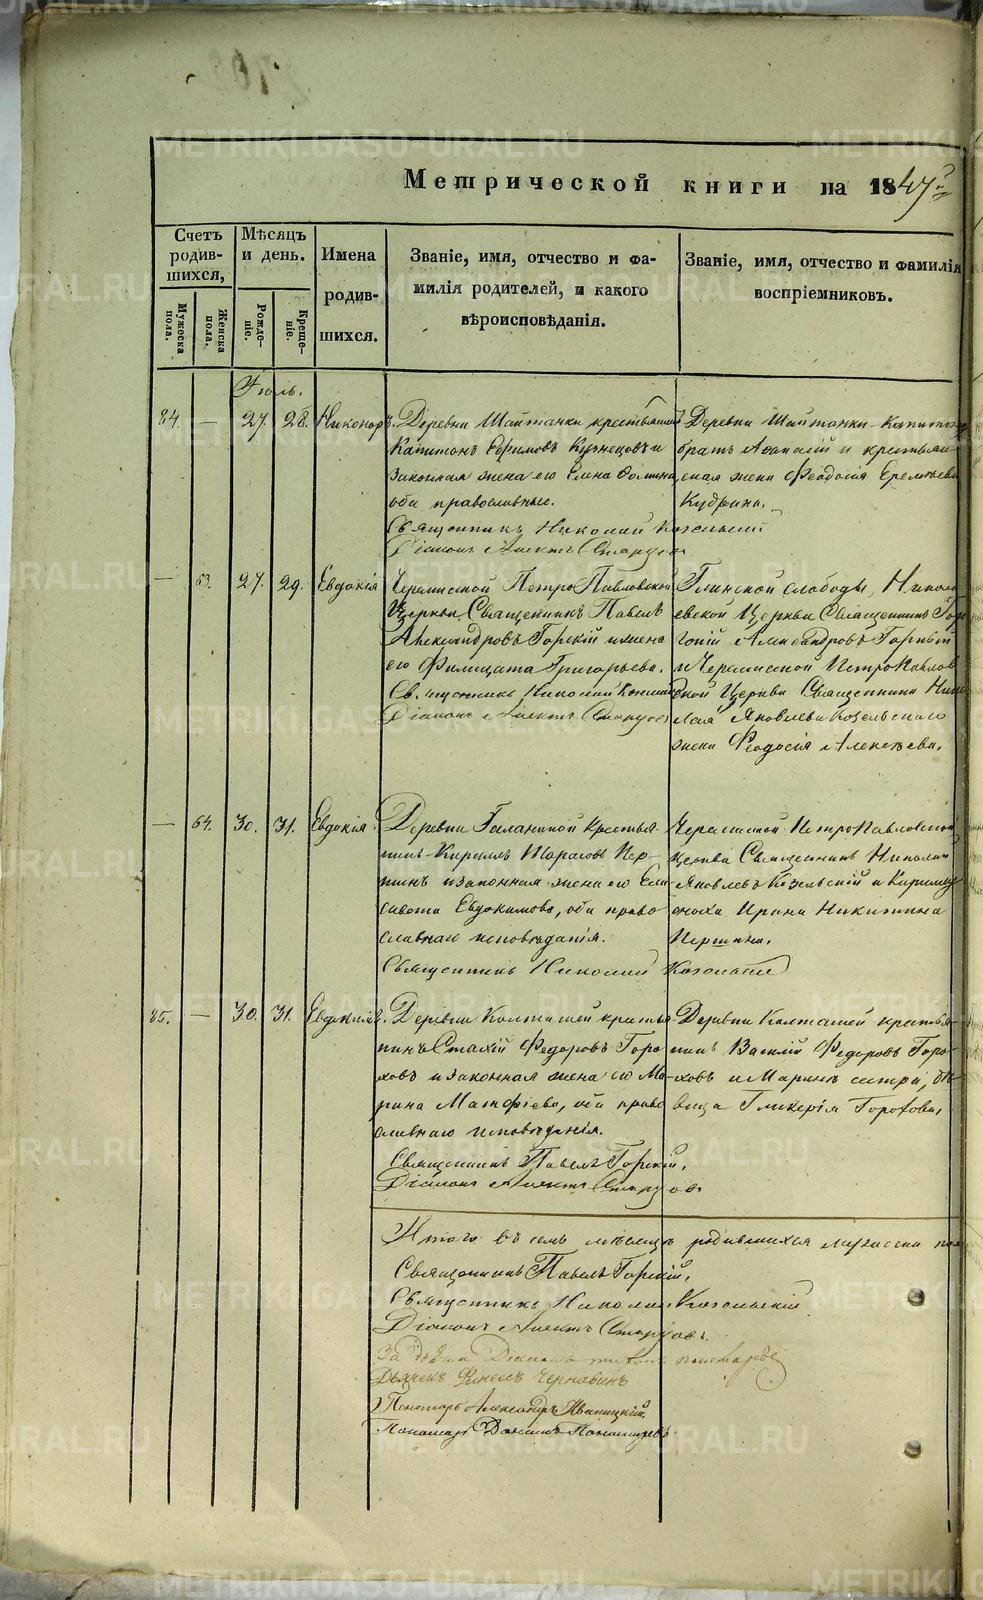 Метрической книги на 1847
Счетъ родив-шихся,
Мужеска пола.
Женска пола.
Мѣсяцъ и день.
Рожде-ніе.
Креще-ніе.
Имена родив-шихся.
Званіе, имя, отчество и фа-
милія родителей, и какого
вѣроисповѣданія.
Званіе, имя, отчество и фамилія
воспріемниковъ.
Іюль.
84. — 27. 28. Никоноръ.
Деревни Шайтанки крестьянинъ
Капитонъ Ефимовъ Кузнецовъ и
законная жена его Елена Фомина,
оба православные.
Священникъ Николай Козельскій
Діаконъ
Деревни Шайтанки Капитона
братъ Афанасій и крестьян
ская жена Феодосія Еремѣева
Кудрина.
— 63. 27. 29. Евдокія
Черемисской Петропавловской
Церкви Священникъ Павелъ
Александровъ Горскій и жена
его Филицата Григорьева.
Священникъ Николай Козельскій
Діаконъ
Глинской слободы, Никола
евской Церкви Священникъ
Александровъ
и Черемисской Петропавлов
ской Церкви Священника Нико
лая Яковлева Козельскаго
жена Феодосія Алексѣева.
— 64. 30. 31. Евдокія.
Деревни Крестья
нинъ Кирилъ Тарасовъ Пер-
шинъ и законная жена его Ели
савета Евдокимова, оба право
славнаго исповѣданія.
Священникъ Николай Козельскій
Черемисской Петропавловской
церкви Священникъ Николай
Яковлевъ Козельскій и Кирилла
сноха Ирина Никитина
Першина.
85. — 30. 31. Евдокимъ.
Деревни Колташей крестья
нинъ Стахій Федоровъ Горо
ховъ и законная жена его Ма-
рина Матфіева, оба право
славнаго исповѣданія.
Священникъ Павелъ Горскій.
Діаконъ
Деревни Колташей крестья-
нинъ Василій Федоровъ Горо-
ховъ и Марины сестра, дѣ-
вица Гликерія Горохова.
Итого въ семъ мѣсяцѣ родившихся мужеска пола
Священникъ Павелъ Горскій.
Священникъ Николай Козельскій
Діаконъ
Дьячекъ Финеесъ Чернавинъ
Пономарь Александръ
Пономарь Пономаревъ
METRIKI.GASO-URAL.RU